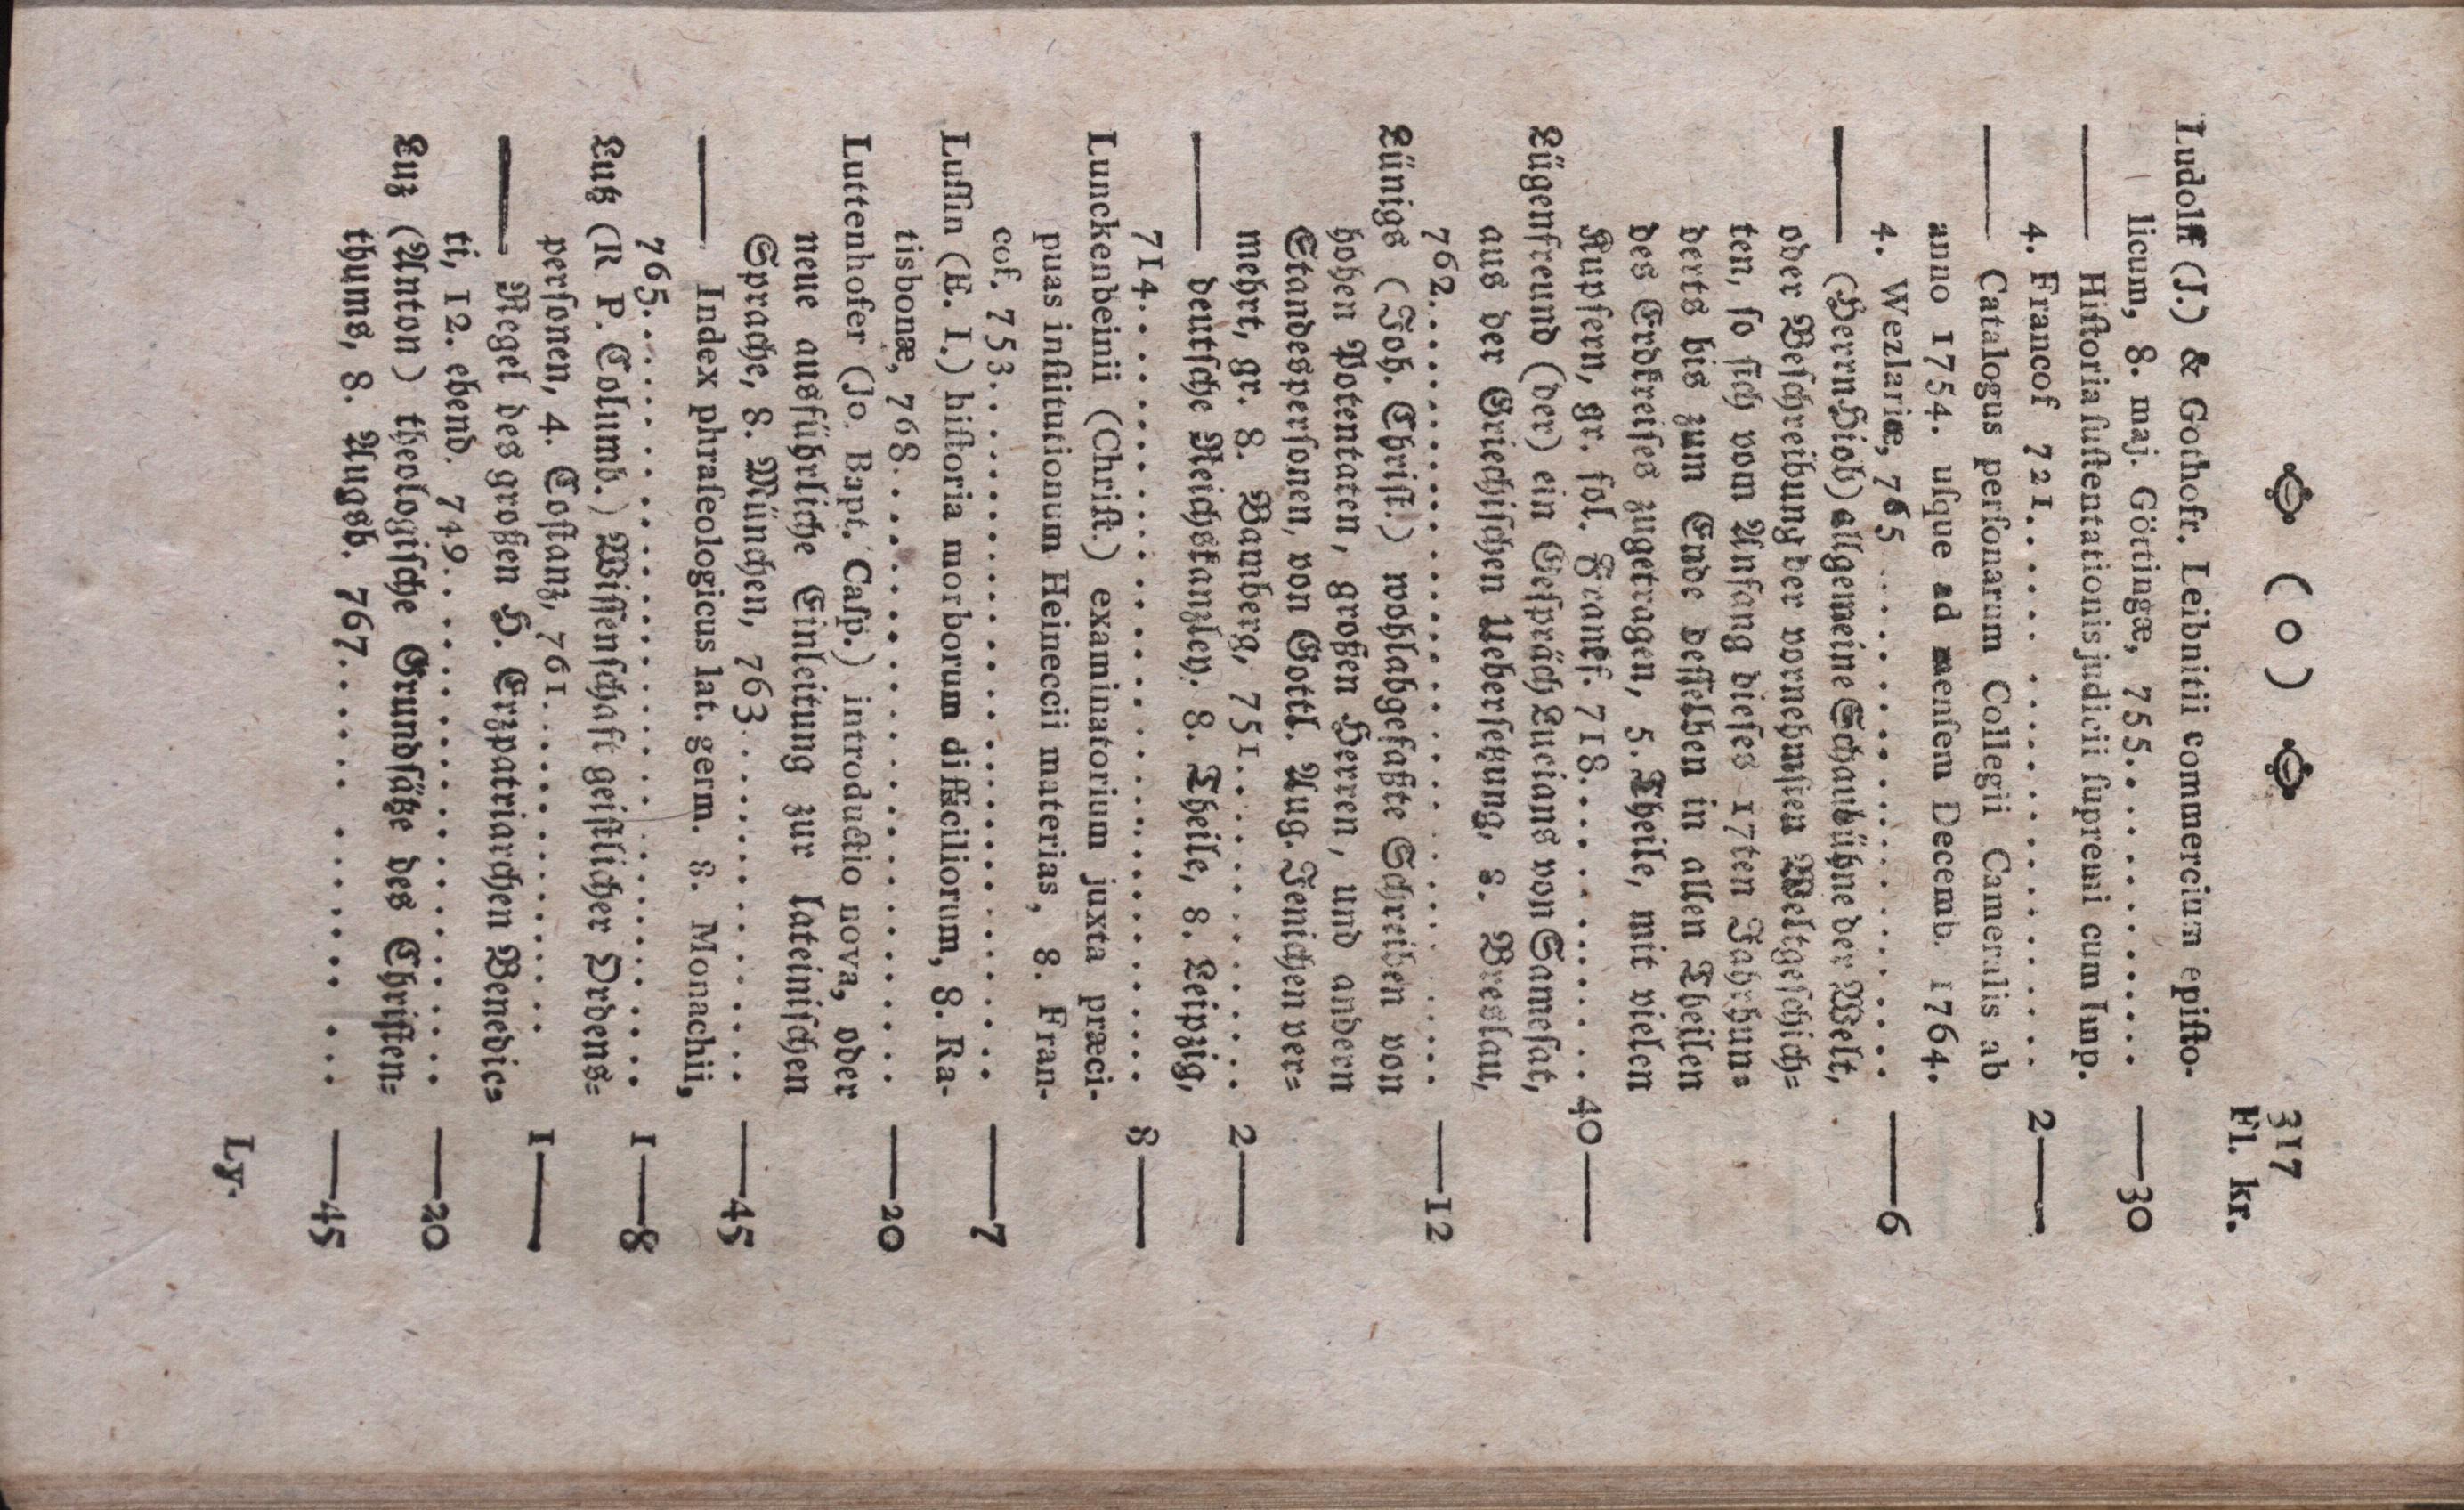 ( o ) 317
Fl. kr.
Ludolff (J.) & Gothofr. Leibnitii commercium epiſto-
licum, 8. maj. Göttingæ, 755. . . . . . . . . . . . . —30
—— Hiſtoria ſuſtentationis judicii ſupremi cum Imp.
4. Francof 721. . . . . . . . . . . . . . . . . . . . 2—
—— Catalogus perſonarum Collegii Cameralis ab
anno 1754. uſque ad menſem Decemb. 1764.
4. Wezlariæ, 765 . . . . . . . . . . . . . . . . . . . —6
—— (Herrn Hiob) allgemeine Schaubühne der Welt,
oder Beſchreibung der vornehmſten Weltgeſchich=
ten, ſo ſich vom Anfang dieſes 17ten Jahrhun=
derts bis zum Ende deſſelben in allen Theilen
des Erdkreiſes zugetragen, 5. Theile, mit vielen
Kupfern, gr. fol. Frankf. 718. . . . . . . . . . . . . 40—
Lügenfreund (der) ein Geſpräch Lucians von Sameſat,
aus der Griechiſchen Ueberſetzung, 8. Breslau,
762. . . . . . . . . . . . . . . . . . . . . . . . . . —12
Lünigs (Joh. Chriſt.) wohlabgefaßte Schreiben von
hohen Potentaten, großen Herren, und andern
Standesperſonen, von Gottl. Aug. Jenichen ver=
mehrt, gr. 8. Bamberg, 751. . . . . . . . . . . . . . 2—
—— deutſche Reichskanzley. 8. Theile, 8. Leipzig,
714. . . . . . . . . . . . . . . . . . . . . . . . . . 8—
Lunckenbeinii (Chriſt.) examinatorium juxta præci-
puas inſtitutionum Heineccii materias, 8. Fran-
cof. 753. . . . . . . . . . . . . . . . . . . . . . . —7
Luſſin (E. I.) hiſtoria morborum difficiliorum, 8. Ra-
tisbonæ, 768. . . . . . . . . . . . . . . . . . . . . —20
Luttenhofer (Jo. Bapt. Caſp.) introductio nova, oder
neue ausführliche Einleitung zur lateiniſchen
Sprache, 8. München, 763. . . . . . . . . . . . . . . —45
—— Index phraſeologicus lat. germ. 8. Monachii,
765. . . . . . . . . . . . . . . . . . . . . . . . . . 1—8
Lutz (R P. Columb.) Wiſſenſchaft geiſtlicher Ordens=
perſonen, 4. Coſtanz, 761. . . . . . . . . . . . . . . 1—
—— Regel des großen H. Erzpatriarchen Benedic=
ti, 12. ebend. 749. . . . . . . . . . . . . . . . . . —20
Luz (Anton) theologiſche Grundſätze des Chriſten=
thums, 8. Augsb. 767. . . . . . . . . . . . . . . . . —45
Ly.